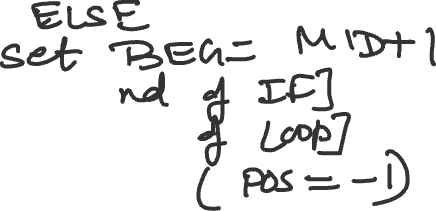 ELSE
set BEG = MID+1
nd of IF]
of Loop]
( POS = -1)